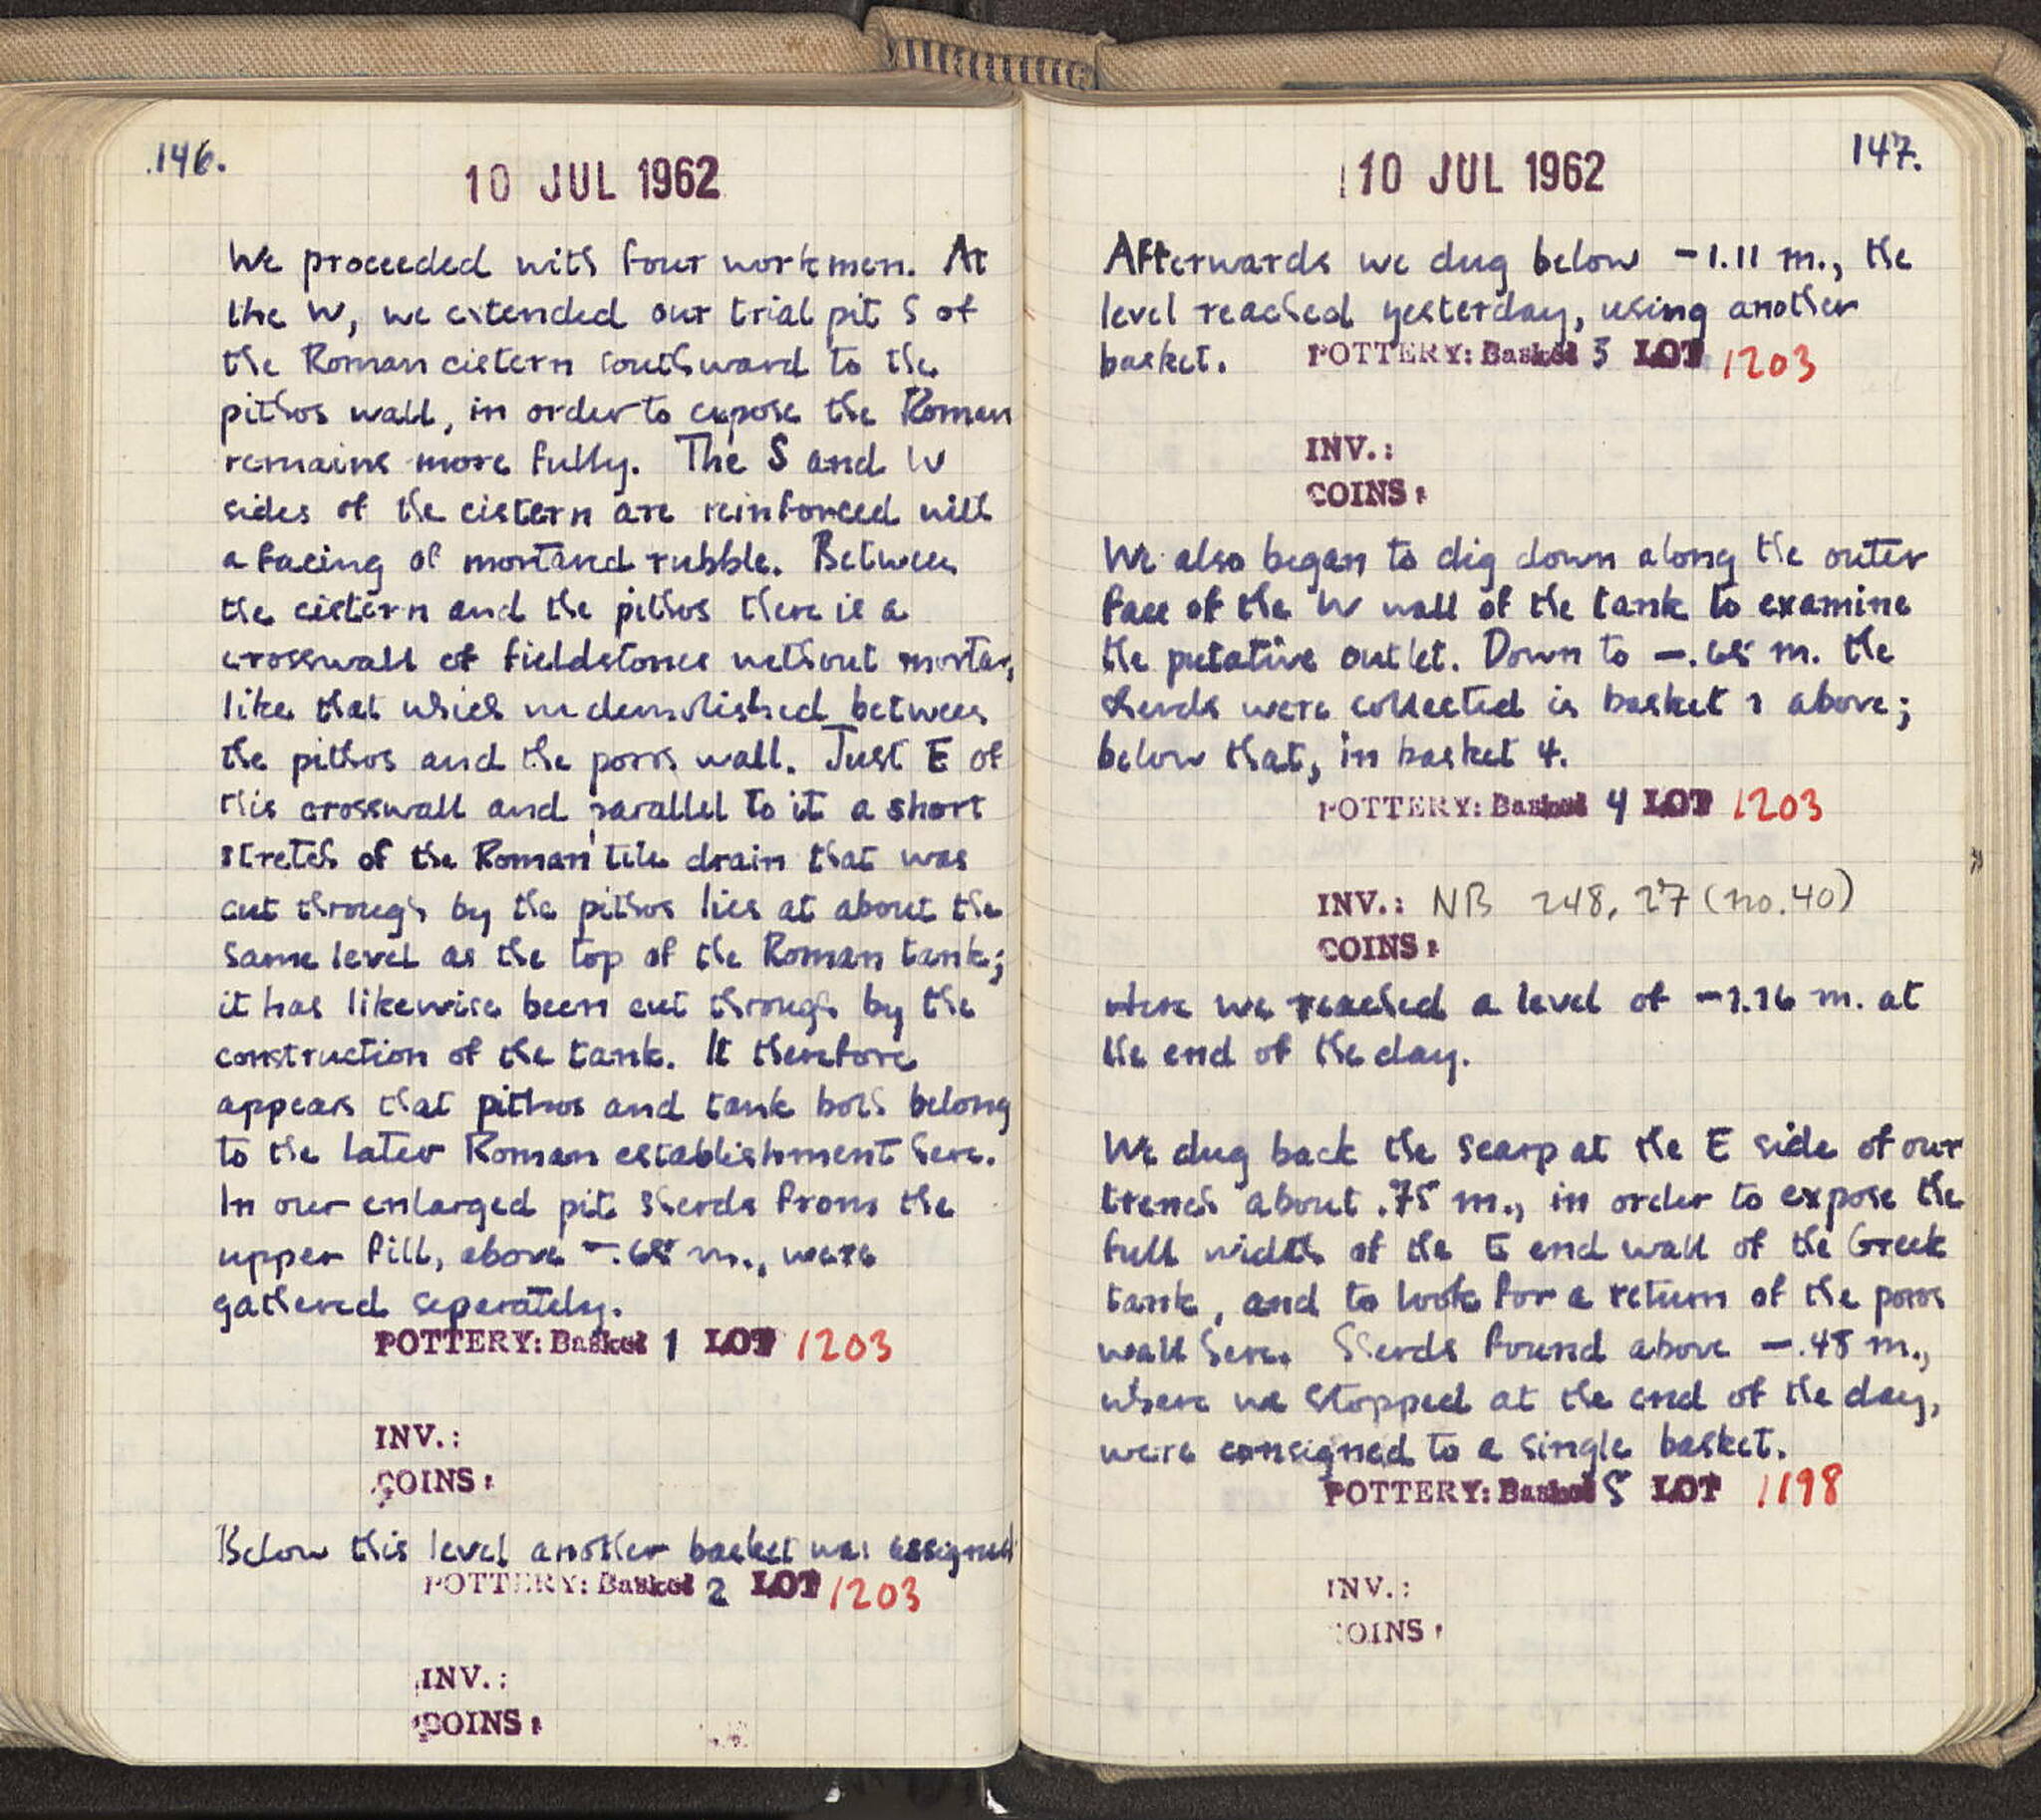 146.
10 JUL 1962
We proceeded with four workmen. At
the W, we extended our trial pit S of
the Roman cistern southward to the
pithos wall, in order to expose the Roman
remains more fully. The S and W
sides of the cistern are reinforced with
a facing of mortared rubble. Between
the cistern and the pithos there is a
crosswall of fieldstones without mortar,
like that which we demolished between
the pithos and the poros wall. Just E of
this crosswall and parallel to it a short
stretch of the Roman tile drain that was
cut through by the pithos lies at about the
same level as the top of the Roman tank;
it has likewise been cut through by the
construction of the tank. It therefore
appears that pithos and tank both belong
to the later Roman establishment here.
In our enlarged pit sherds from the
upper fill, above -.65 m., were
gathered seperately.
POTTERY: Basket 1 LOT 1203
INV.:
COINS:
Below this level another basket was assigned
POTTERY: Basket 2 LOT 1203
INV.:
COINS:
147.
10 JUL 1962
Afterwards we dug below -1.11 m., the
level reached yesterday, using another
basket. POTTERY: Basket 3 LOT 1203
INV.:
COINS:
We also began to dig down along the outer
face of the W wall of the tank to examine
the putative outlet. Down to -.65 m. the
sherds were collected in basket 1 above;
below that, in basket 4.
POTTERY: Basket 4 LOT 1203
INV.: NB 248, 27 (no. 40)
COINS:
Here we reached a level of -1.16 m. at
the end of the day.
We dug back the scarp at the E side of our
trench about .75 m., in order to expose the
full width of the E end wall of the Greek
tank, and to look for a return of the poros
wall here. Sherds found above -.45 m.,
where we stopped at the end of the day,
were consigned to a single basket.
POTTERY: Basket 5 LOT 1198
INV.:
COINS: